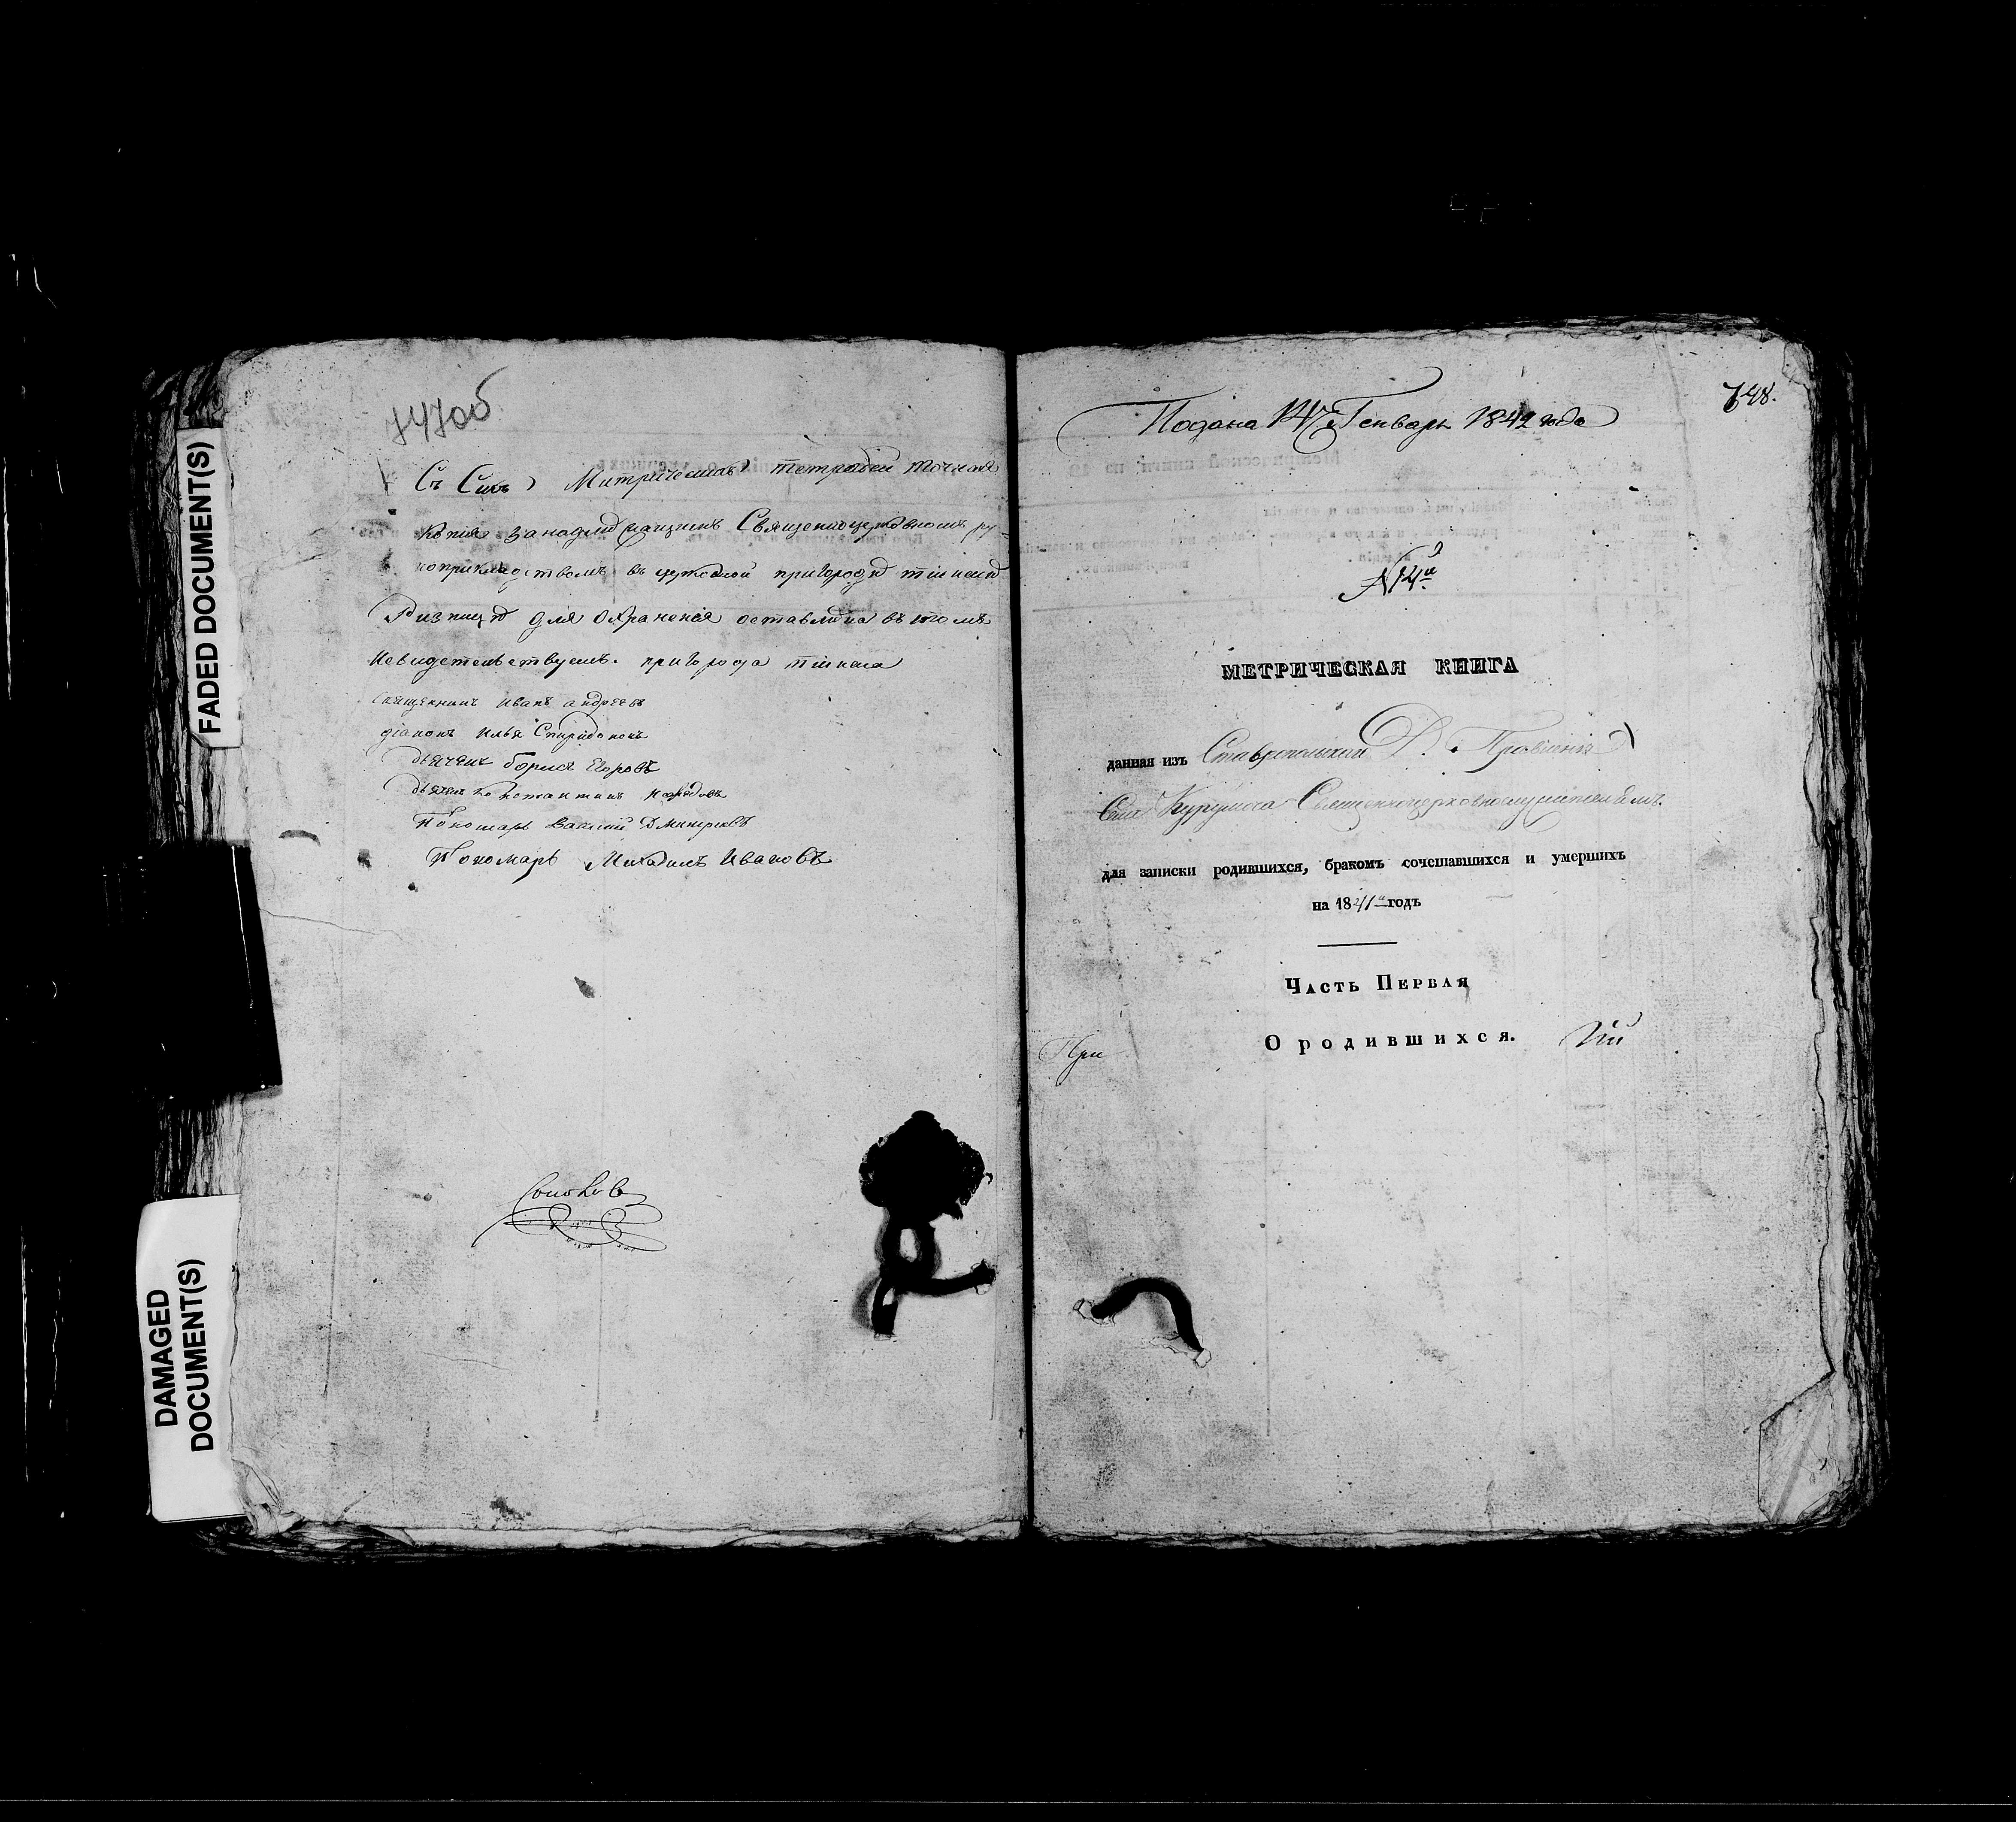 FADED DOCUMENT(S)
DAMAGED
DOCUMENT(S)
747об
Съ Сихъ Митрическихъ тетрадей точная
копія за надлежащимъ Священноцерковномъ ру-
коприкладствомъ въ церковной пригорода Тіинска
Ризницѣ для охраненія оставлена въ томъ
и свидетельствуемъ. пригорода тіинска
священникъ Иванъ андреевъ
діаконъ Илья Спиридоновъ
дьячекъ борисъ Егоровъ
дьячекъ Константинъ
Пономарь Василій Дмитріевъ
Пономарь Михаилъ Ивановъ
748.
Подана Генваря 1842 года
№ 14й
МЕТРИЧЕСКАЯ КНИГА
данная изъ Ставропольскаго Д. Правленія
Села Курумоча Священноцерковнослужителямъ
для записки родившихся, бракомъ сочетавшихся и умершихъ
на 1841й годъ
Часть Первая
О родившихся.
При